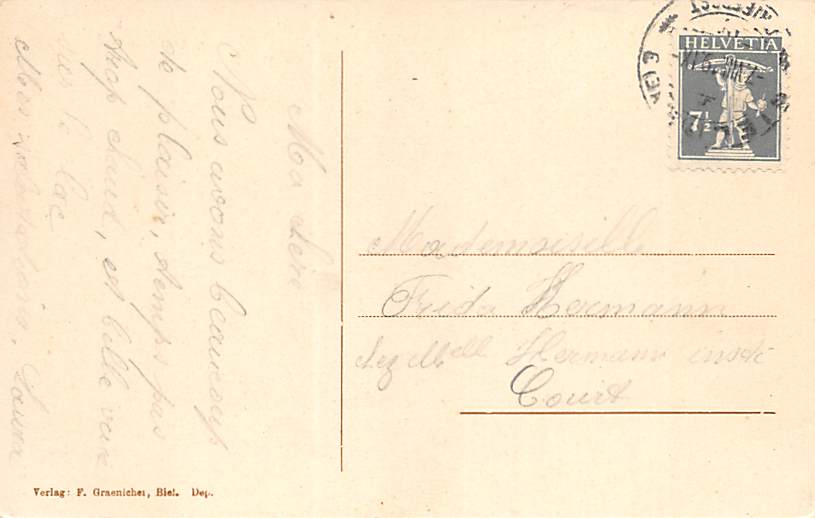 Ma chère
Nous avons beaucoup
de plaisir, temps pas
trop chaud, et belle vue
sur le lac
Mes salutations, Laura
HELVETIA
7½
Mademoiselle
Frida Hermann
chez Mell Hermann instit
Court
Verlag: F. Graenicher, Biel. Dep.